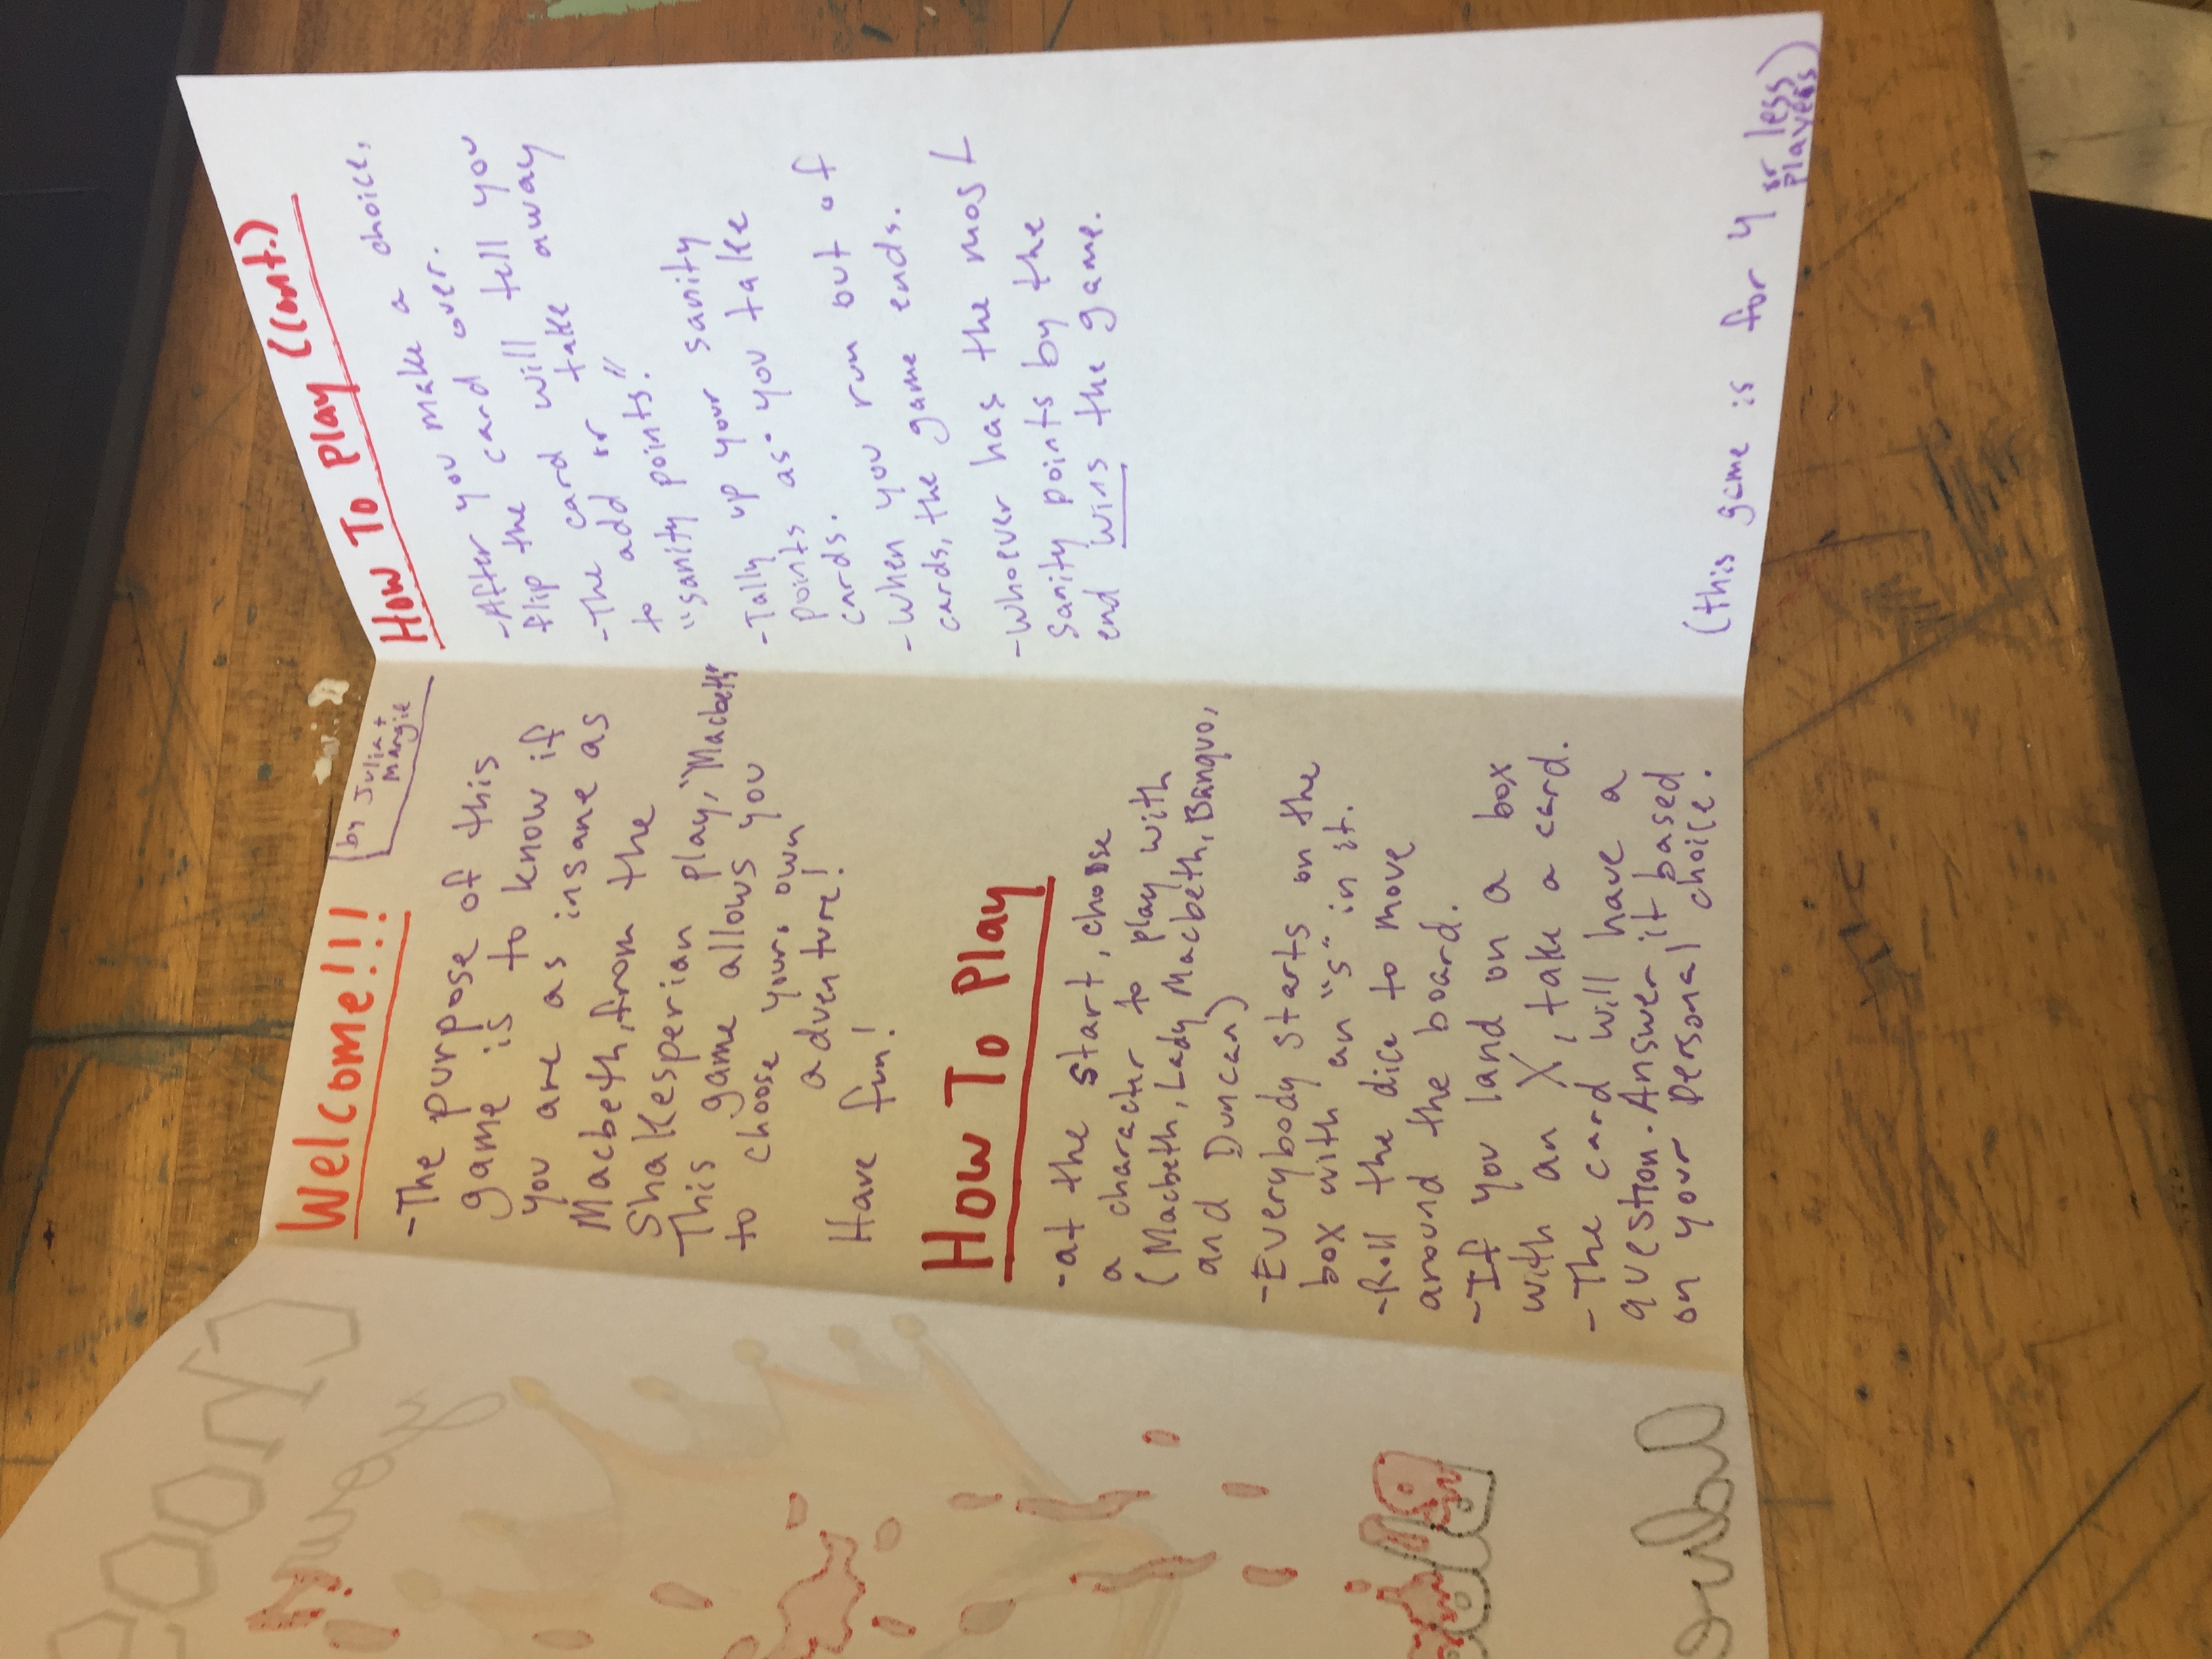 Welcome!!!
by Julia +
Margie
-The purpose of this
game is to know if
you are as insane as
Macbeth, from the
Shakesperian play, "Macbeth"
This game allows you
to choose your own
adventure!
Have fun!
How To Play
-at the start, choose
a character to play with
(Macbeth, Lady Macbeth, Banquo,
and Duncan)
-Everybody starts on the
box with an "s" in it.
-Roll the dice to move
around the board.
-If you land on a box
with an X, take a card.
-The card will have a
question. Answer it based
on your personal choice.
How To Play (cont.)
-After you make a choice,
flip the card over.
-The card will tell you
to add or take away
"sanity points."
-Tally up your sanity
points as you take
cards.
-When you run out of
cards, the game ends.
-Whoever has the most
sanity points by the
end wins the game.
(this game is for 4 or less
players)